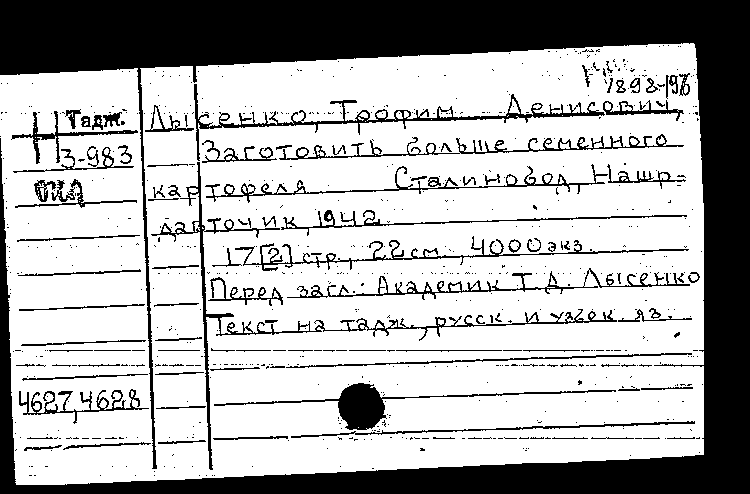 1898-1976
Н Тадж. Лысенко, Трофим Денисович,
3-983 Заготовить больше семенного
картофеля Сталинобод, Нашр-
давточик, 1942
17 [2] стр., 22 см., 4000 экз.
Перед загл.: Академик Т. Д. Лысенко
Текст на тадж., русск. и узбек. яз.
4627, 4628